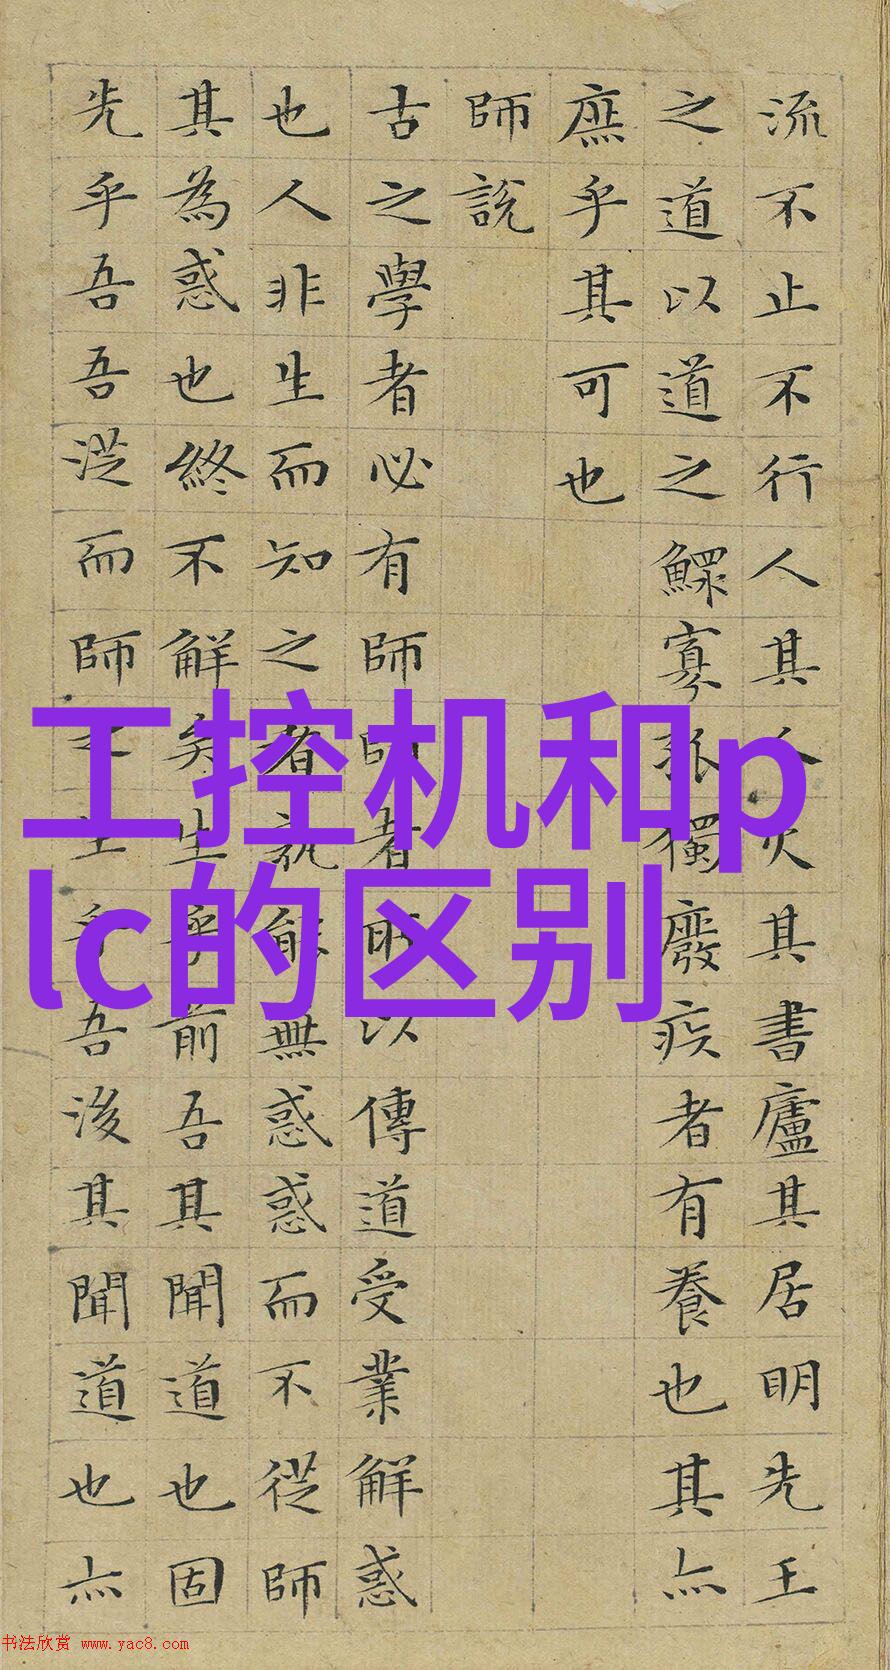 流不止不行人其人火其書廬其居明先王
之道以道之鰥寡孤獨廢疾者有養也其亦
庶乎其可也
師說
古之學者必有師師者所以傳道受業解惑
也人非生而知之者孰能無惑惑而不從師
其為惑也終不解矣生乎前吾其聞道也固
先乎吾吾從而師之生乎吾後其聞道也亦
工控机和p
lc的区别
书法欣赏 www.yac8.com